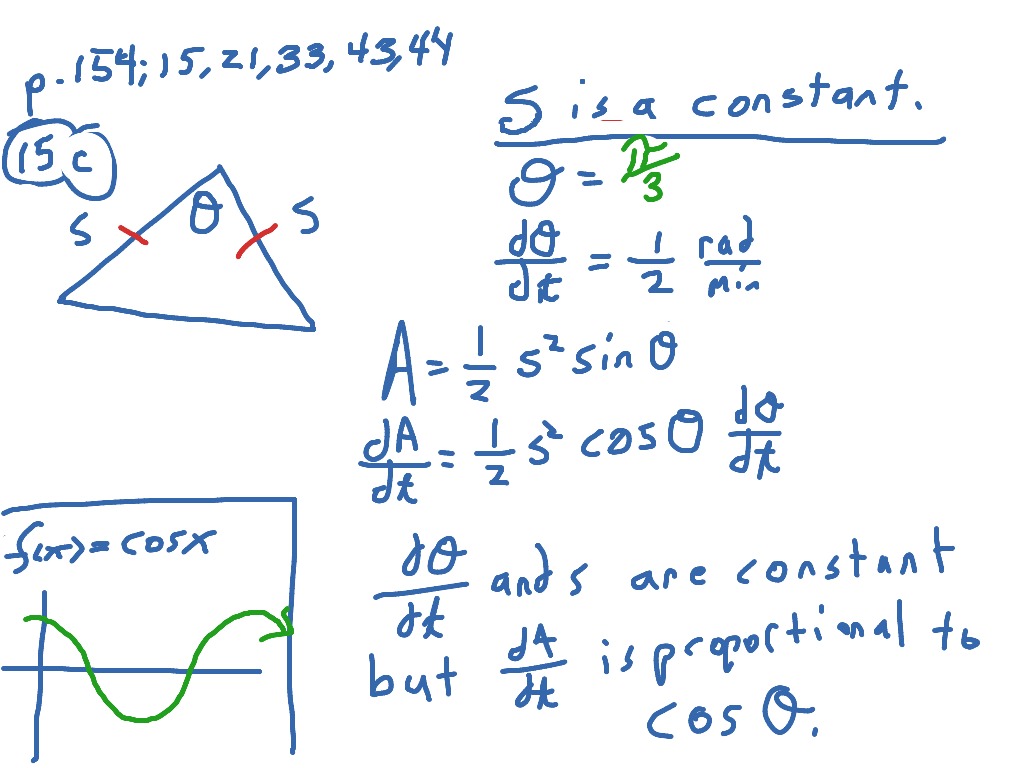 p. 154; 15, 21, 33, 43, 44
15 c
S θ S
S is a constant.
θ = π/3
dθ/dt = 1/2 rad/min
A = 1/2 s² sin θ
dA/dt = 1/2 s² cos θ dθ/dt
f(x) = cos x
dθ/dt and s are constant
but dA/dt is proportional to
cos θ.